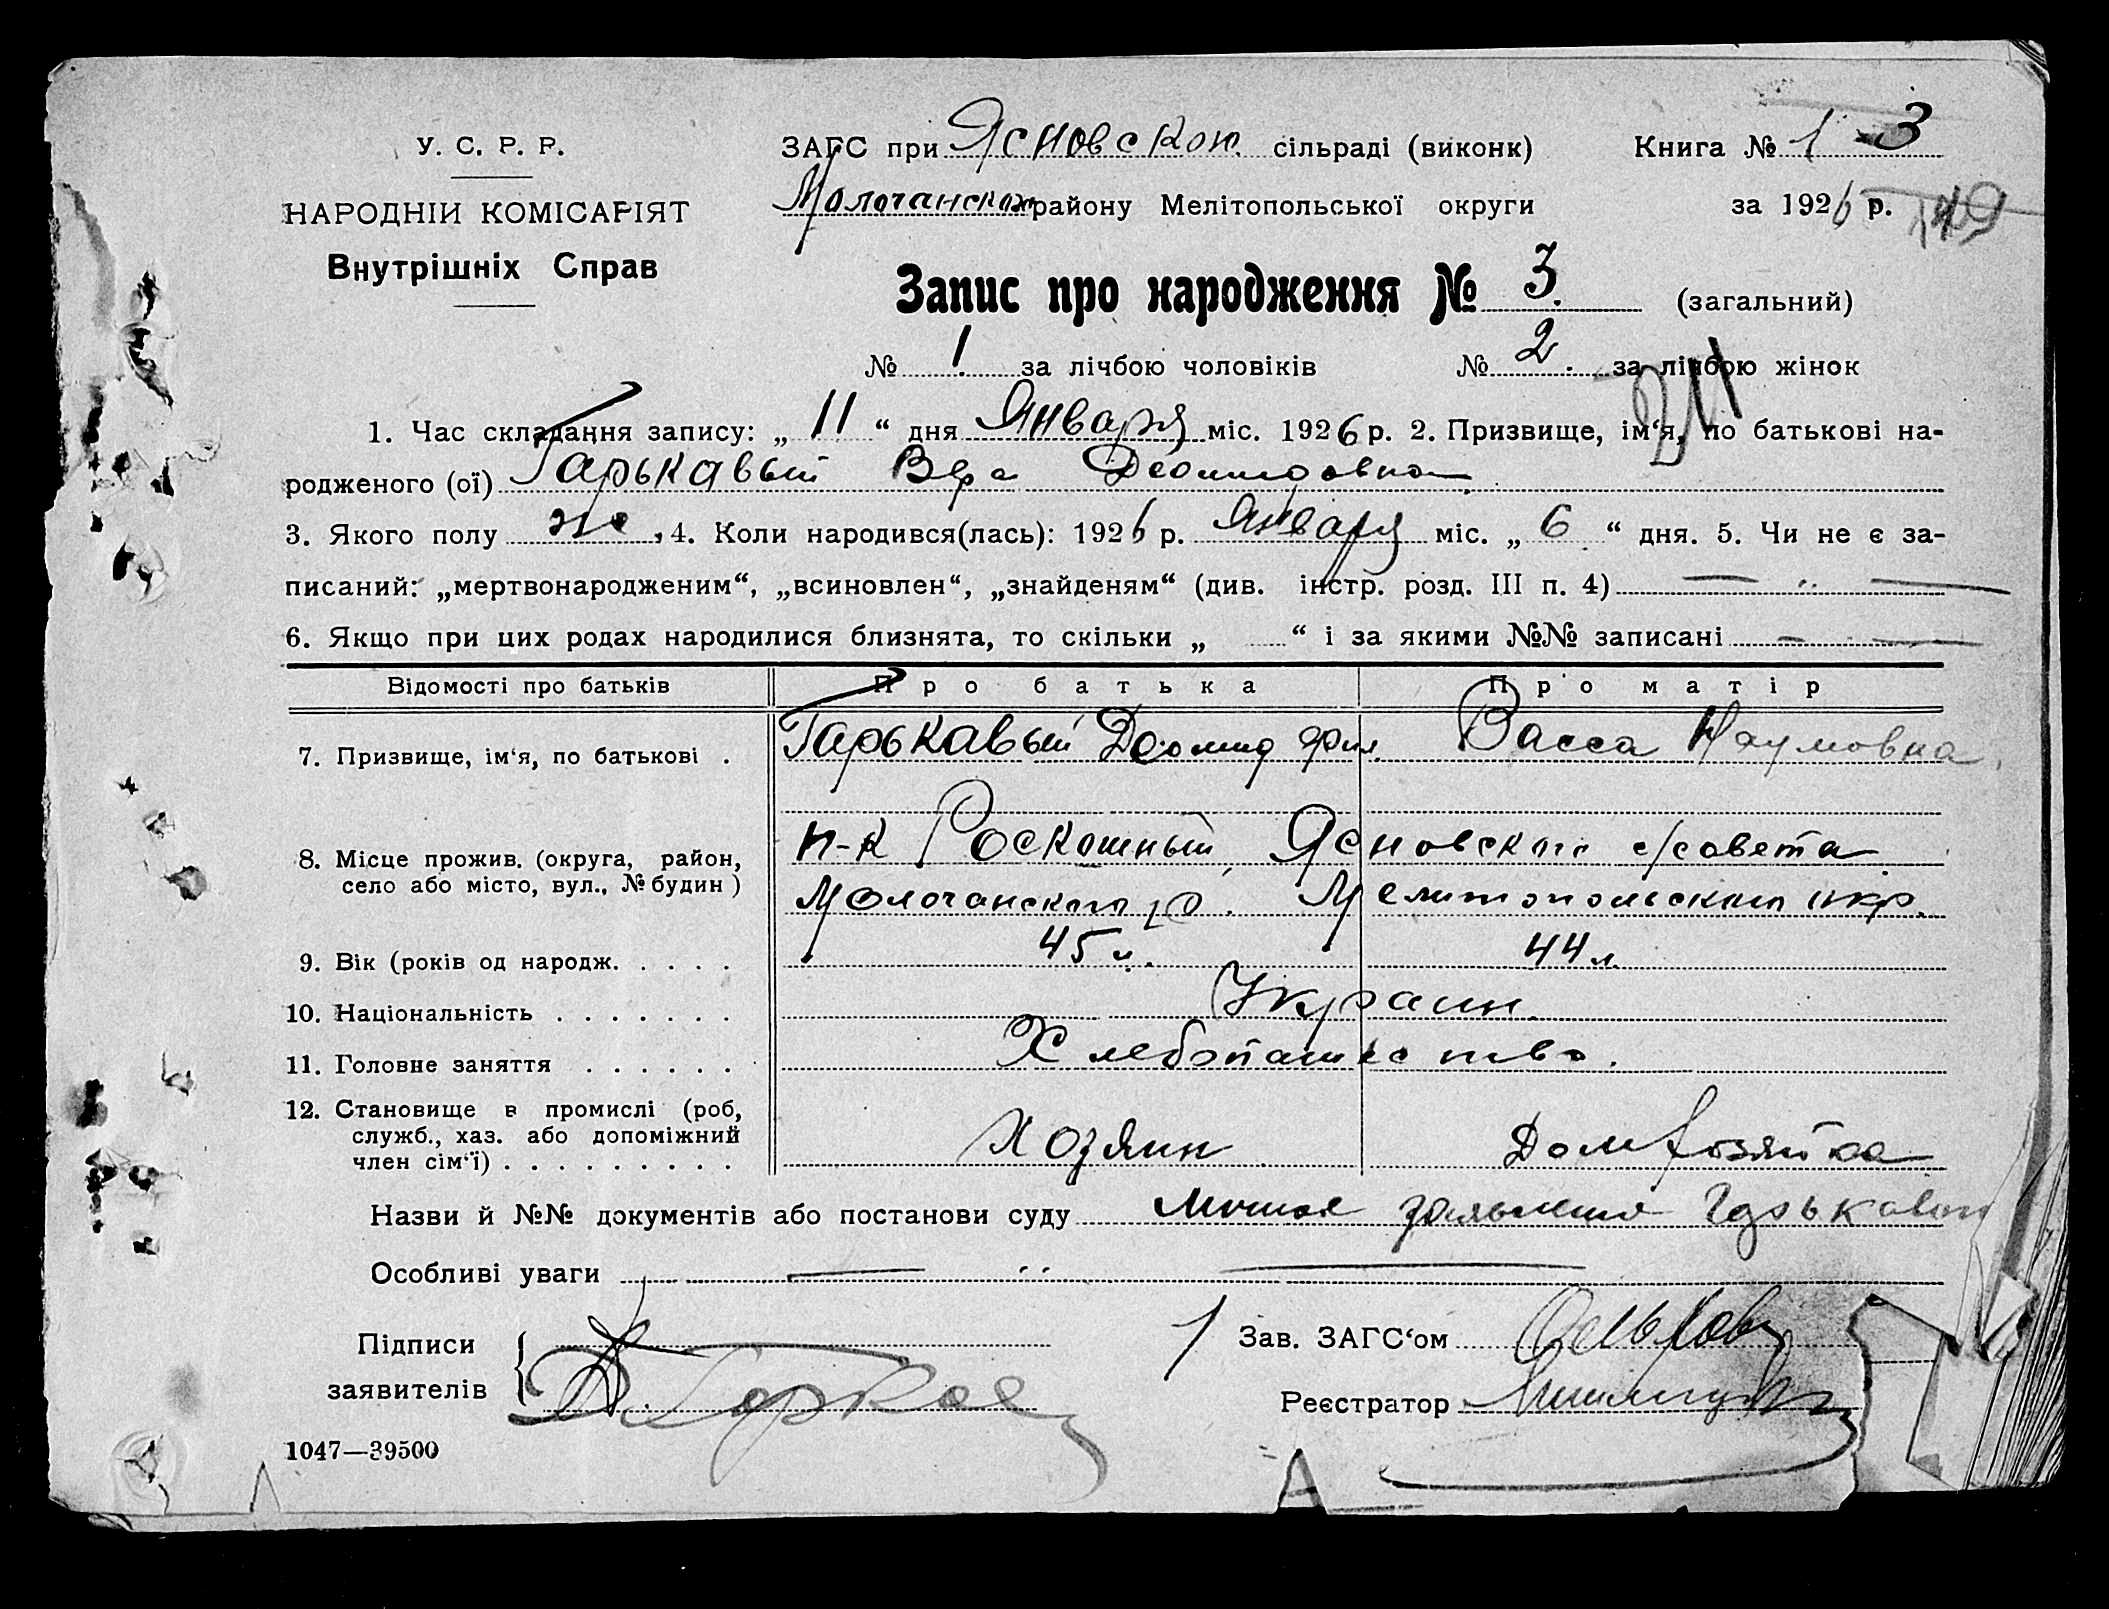 У. С. Р. Р.
НАРОДНІЙ КОМІСАРІЯТ
Внутрішніх Справ
ЗАГС при Ясновской сільраді (виконк)
Молочанском району Мелітопольської округи
Книга № 1 3
за 1926 р. 149
Запис про народження № 3. (загальний)
№ 1. за лічбою чоловіків № 2. за лічбою жінок
1. Час складання запису: „ 11 “ дня Января міс. 1926 р. 2. Призвище, ім‘я, по батькові на-
родженого (ої) Гарькавый Вера Деомидовна
3. Якого полу же, 4. Коли народився(лась): 1926 р. Января міс. „ 6 “ дня. 5. Чи не є за-
писаний: „мертвонародженим“, „всиновлен“, „знайденям“ (див. інстр. розд. III п. 4) — „ —
6. Якщо при цих родах народилися близнята, то скільки „ “ і за якими №№ записані — —
Відомості про батьків Про батька Про матір
7. Призвище, ім‘я, по батькові . Гарькавый Деомид Фил. Васса Наумовна
8. Місце прожив. (округа, район,
село або місто, вул., № будин)
п-к Роскошный, Ясновского с/совета
Молочанского р. Мелитопольского окр.
9. Вік (років од народж. . . . . 45 л. 44 л.
10. Національність . . . . . . . Украин.
11. Головне заняття . . . . . . Хлебопашество.
12. Становище в промислі (роб,
служб., хаз. або допоміжний
член сім‘ї) . . . . . . . . . Хозяин Домхозяйка
Назви й №№ документів або постанови суду личное заявление Гарькавый
Особливі уваги — „ —
Підписи
заявителів
Зав. ЗАГС‘ом
Реєстратор
1047—39500